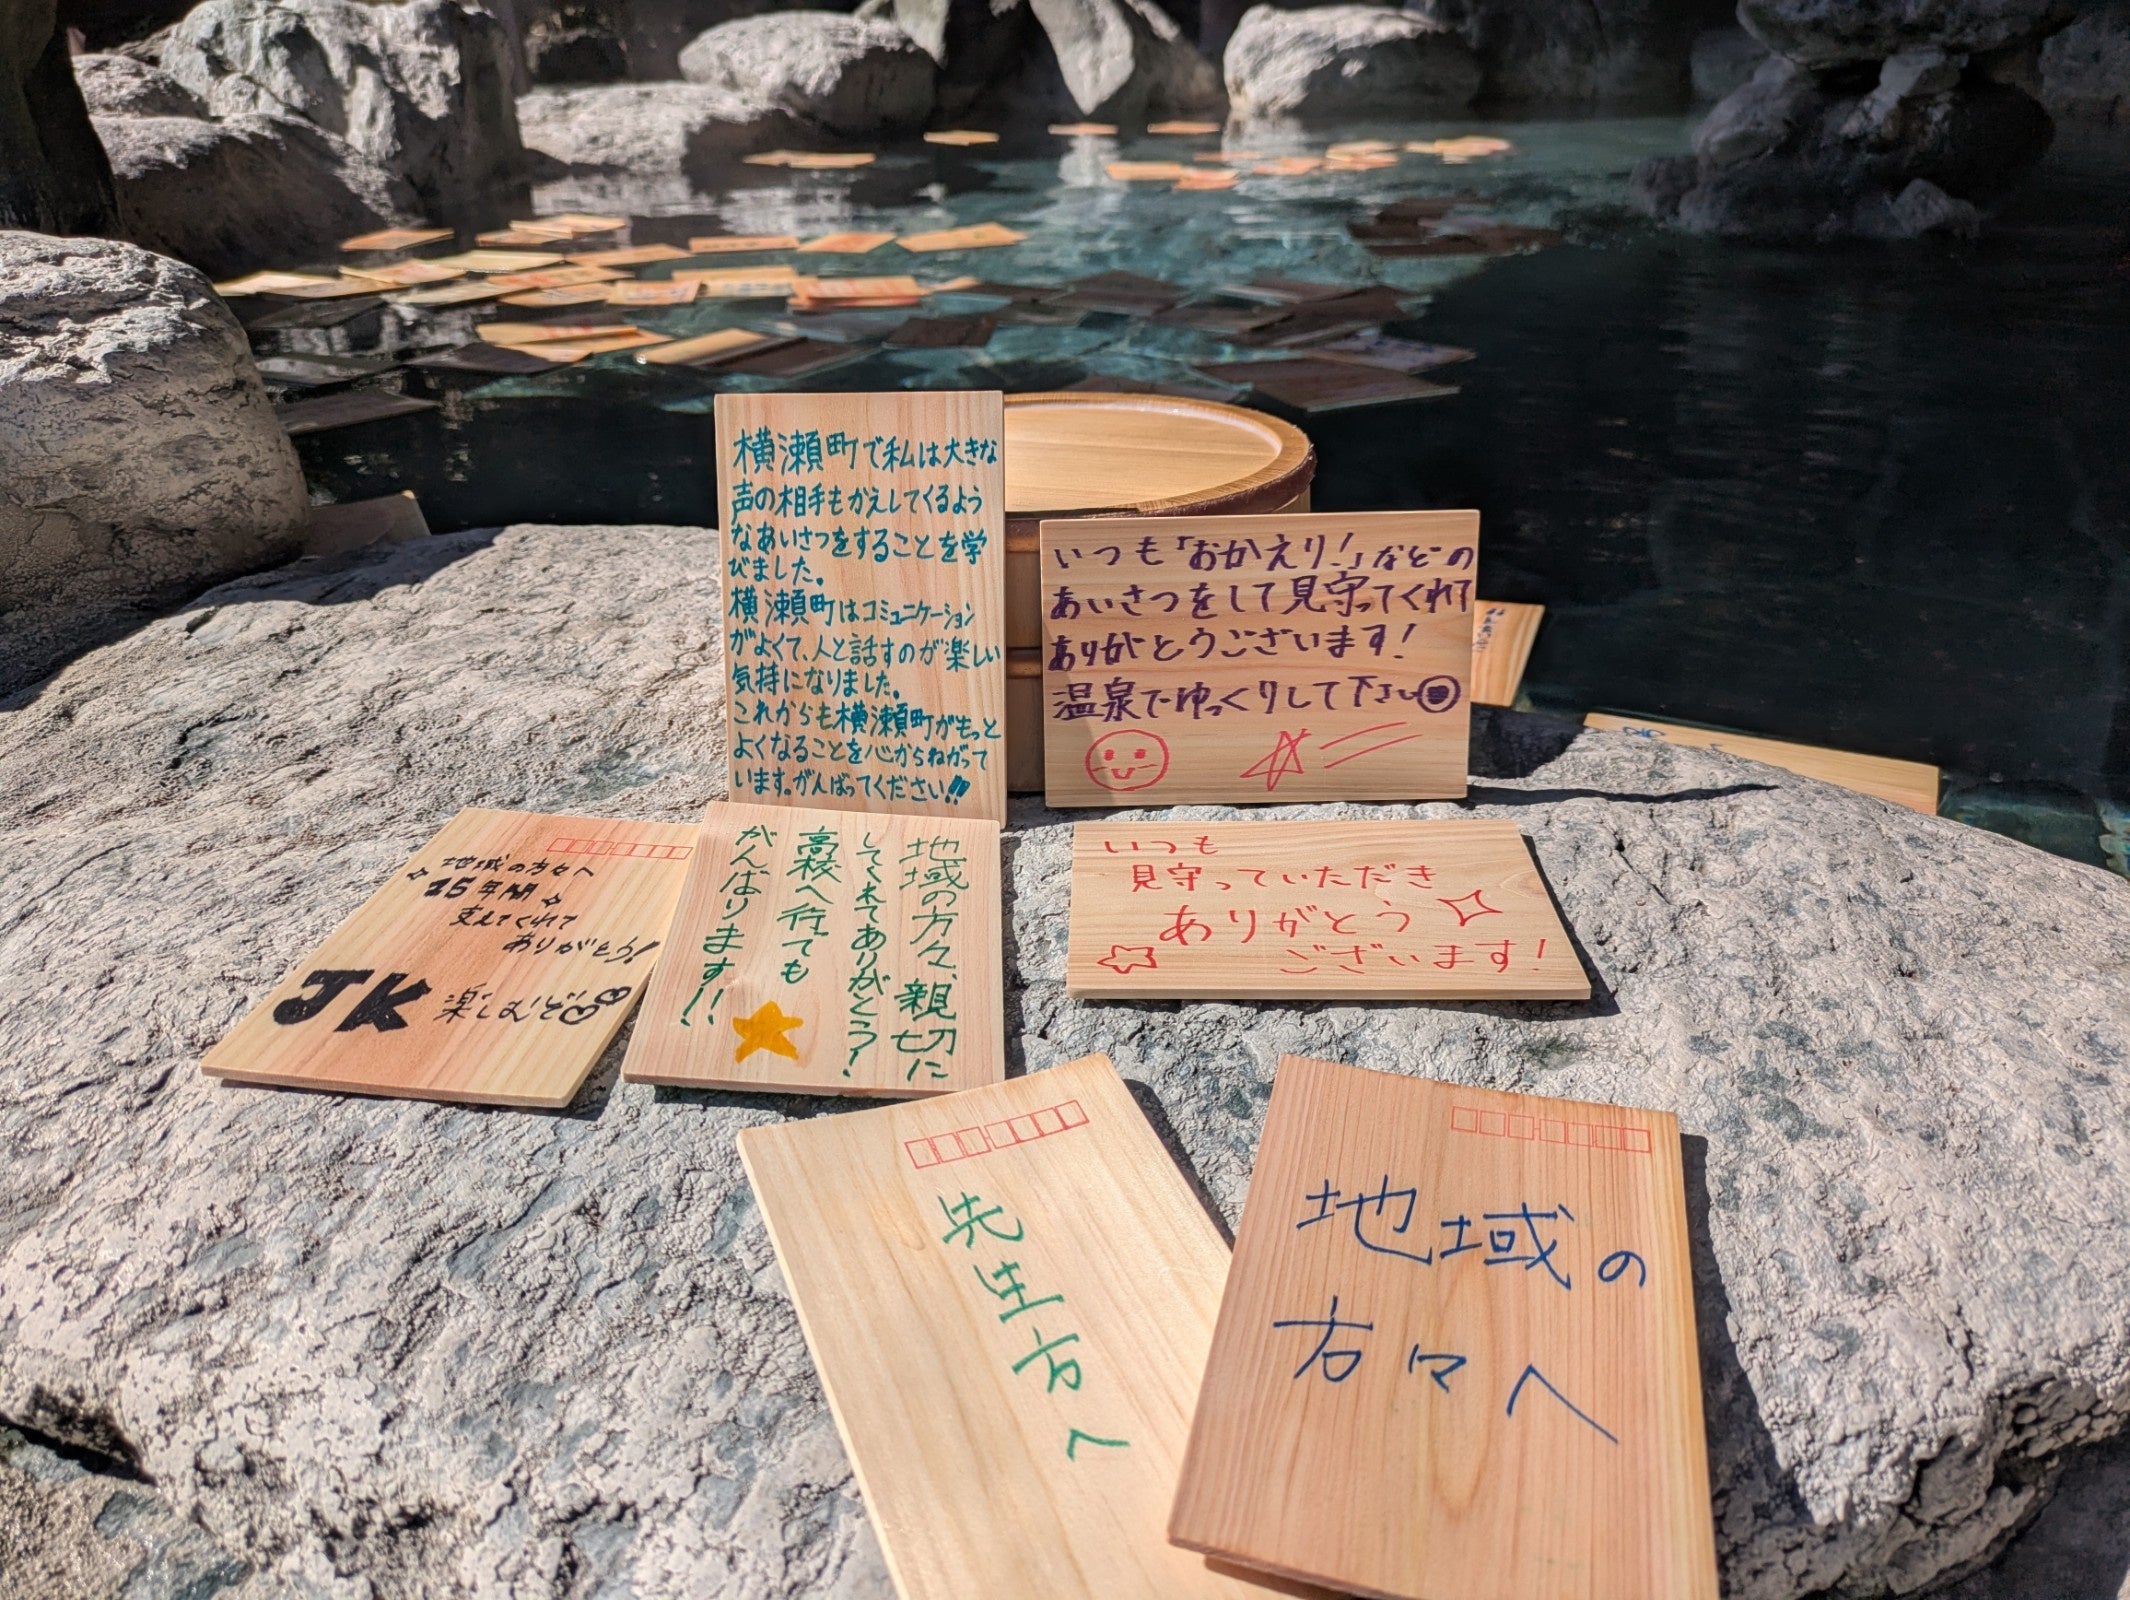 横瀬町で私は大きな
声の相手もかえしてくるよう
なあいさつをすることを学
びました。
横瀬町はコミュニケーション
がよくて、人と話すのが楽しい
気持になりました。
これからも横瀬町がもっと
よくなることを心からねがって
います。がんばってください!!
いつも「おかえり!」などの
あいさつをして見守ってくれて
ありがとうございます!
温泉でゆっくりして下さい
地域の方々へ
15年間
支えてくれて
ありがとう!
JK 楽しむぞい
地域の方々、親切に
してくれてありがとう!
高校へ行っても
がんばります!!
いつも
見守っていただき
ありがとう
ございます!
先生方へ
地域の
方々へ